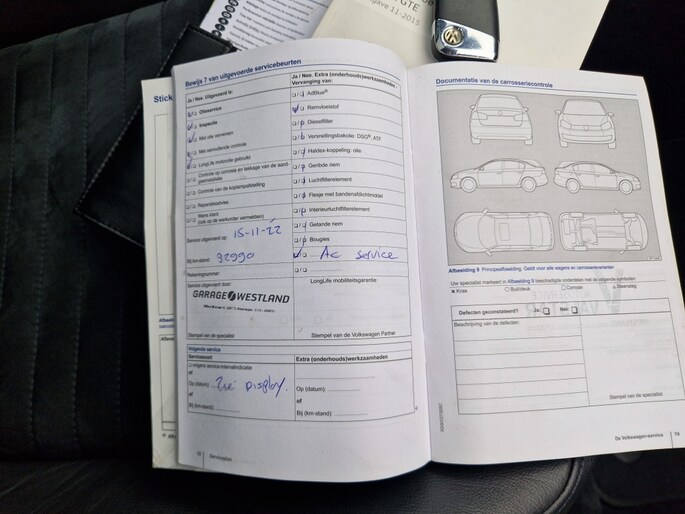 GTE
gave 11-2015
Stick
Bewijs 7 van uitgevoerde servicebeurten
Ja / Nee. Uitgevoerd is:
Olieservice
Inspectie
Met olie verversen
Met aanvullende controle
LongLife motorolie gebruikt
Controle op corrosie en lekkage van de aard-
Controle van de koplampafstelling
Reparatieadvies
Wens klant
(ook op de werkorder vermelden)
Service uitgevoerd op: 15-11-22
Bij km-stand: 32990
Rekeningnummer:
Service uitgevoerd door:
GARAGE WESTLAND
Stempel van de specialist
Ja / Nee. Extra (onderhouds)werkzaamheden -
Vervanging van:
AdBlue®
Remvloeistof
Dieselfilter
Versnellingsbakolie: DSG®, ATF
Haldex-koppeling: olie
Geribde riem
Luchtfilterelement
Flesje met bandenafdichtmiddel
Interieurluchtfilterelement
Getande riem
Bougies
Ac service
LongLife mobiliteitsgarantie:
Stempel van de Volkswagen Partner
Volgende service
Servicesoort
Extra (onderhouds)werkzaamheden
Zie Display.
of
Op (datum):
of
Bij (km-stand):
Op (datum):
of
Bij (km-stand):
Serviceplan
Documentatie van de carrosseriecontrole
Afbeelding 9 Principeafbeelding. Geldt voor alle wagens en carrosserievarianten
Uw specialist markeert in Afbeelding 9 beschadigde onderdelen met de volgende symbolen:
Kras
Buil/deuk
Corrosie
Steenslag
Defecten geconstateerd? Ja: Nee:
Beschrijving van de defecten:
Stempel van de specialist
De Volkswagen-service